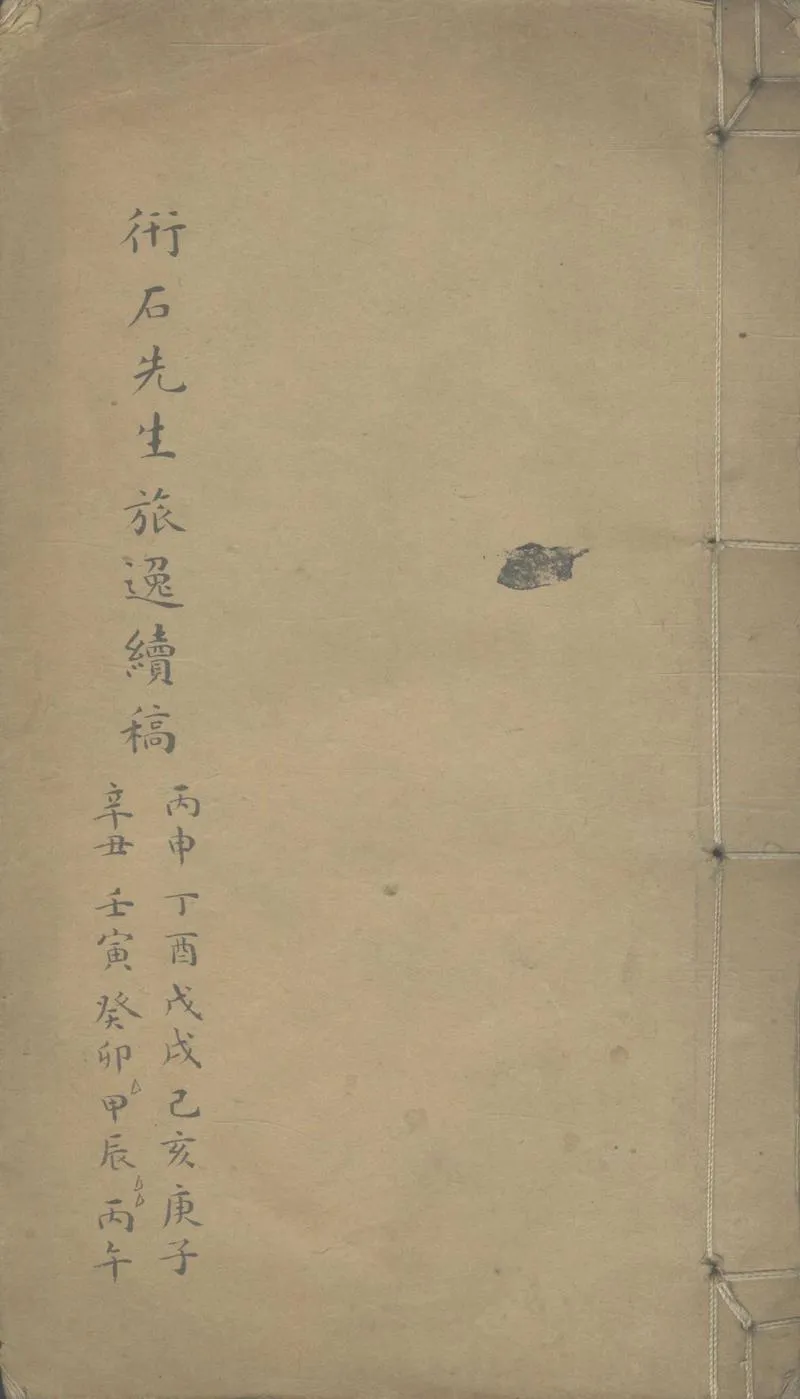 衎石先生旅逸續稿
丙申 丁酉 戊戌 己亥 庚子
辛丑 壬寅 癸卯 甲辰 丙午